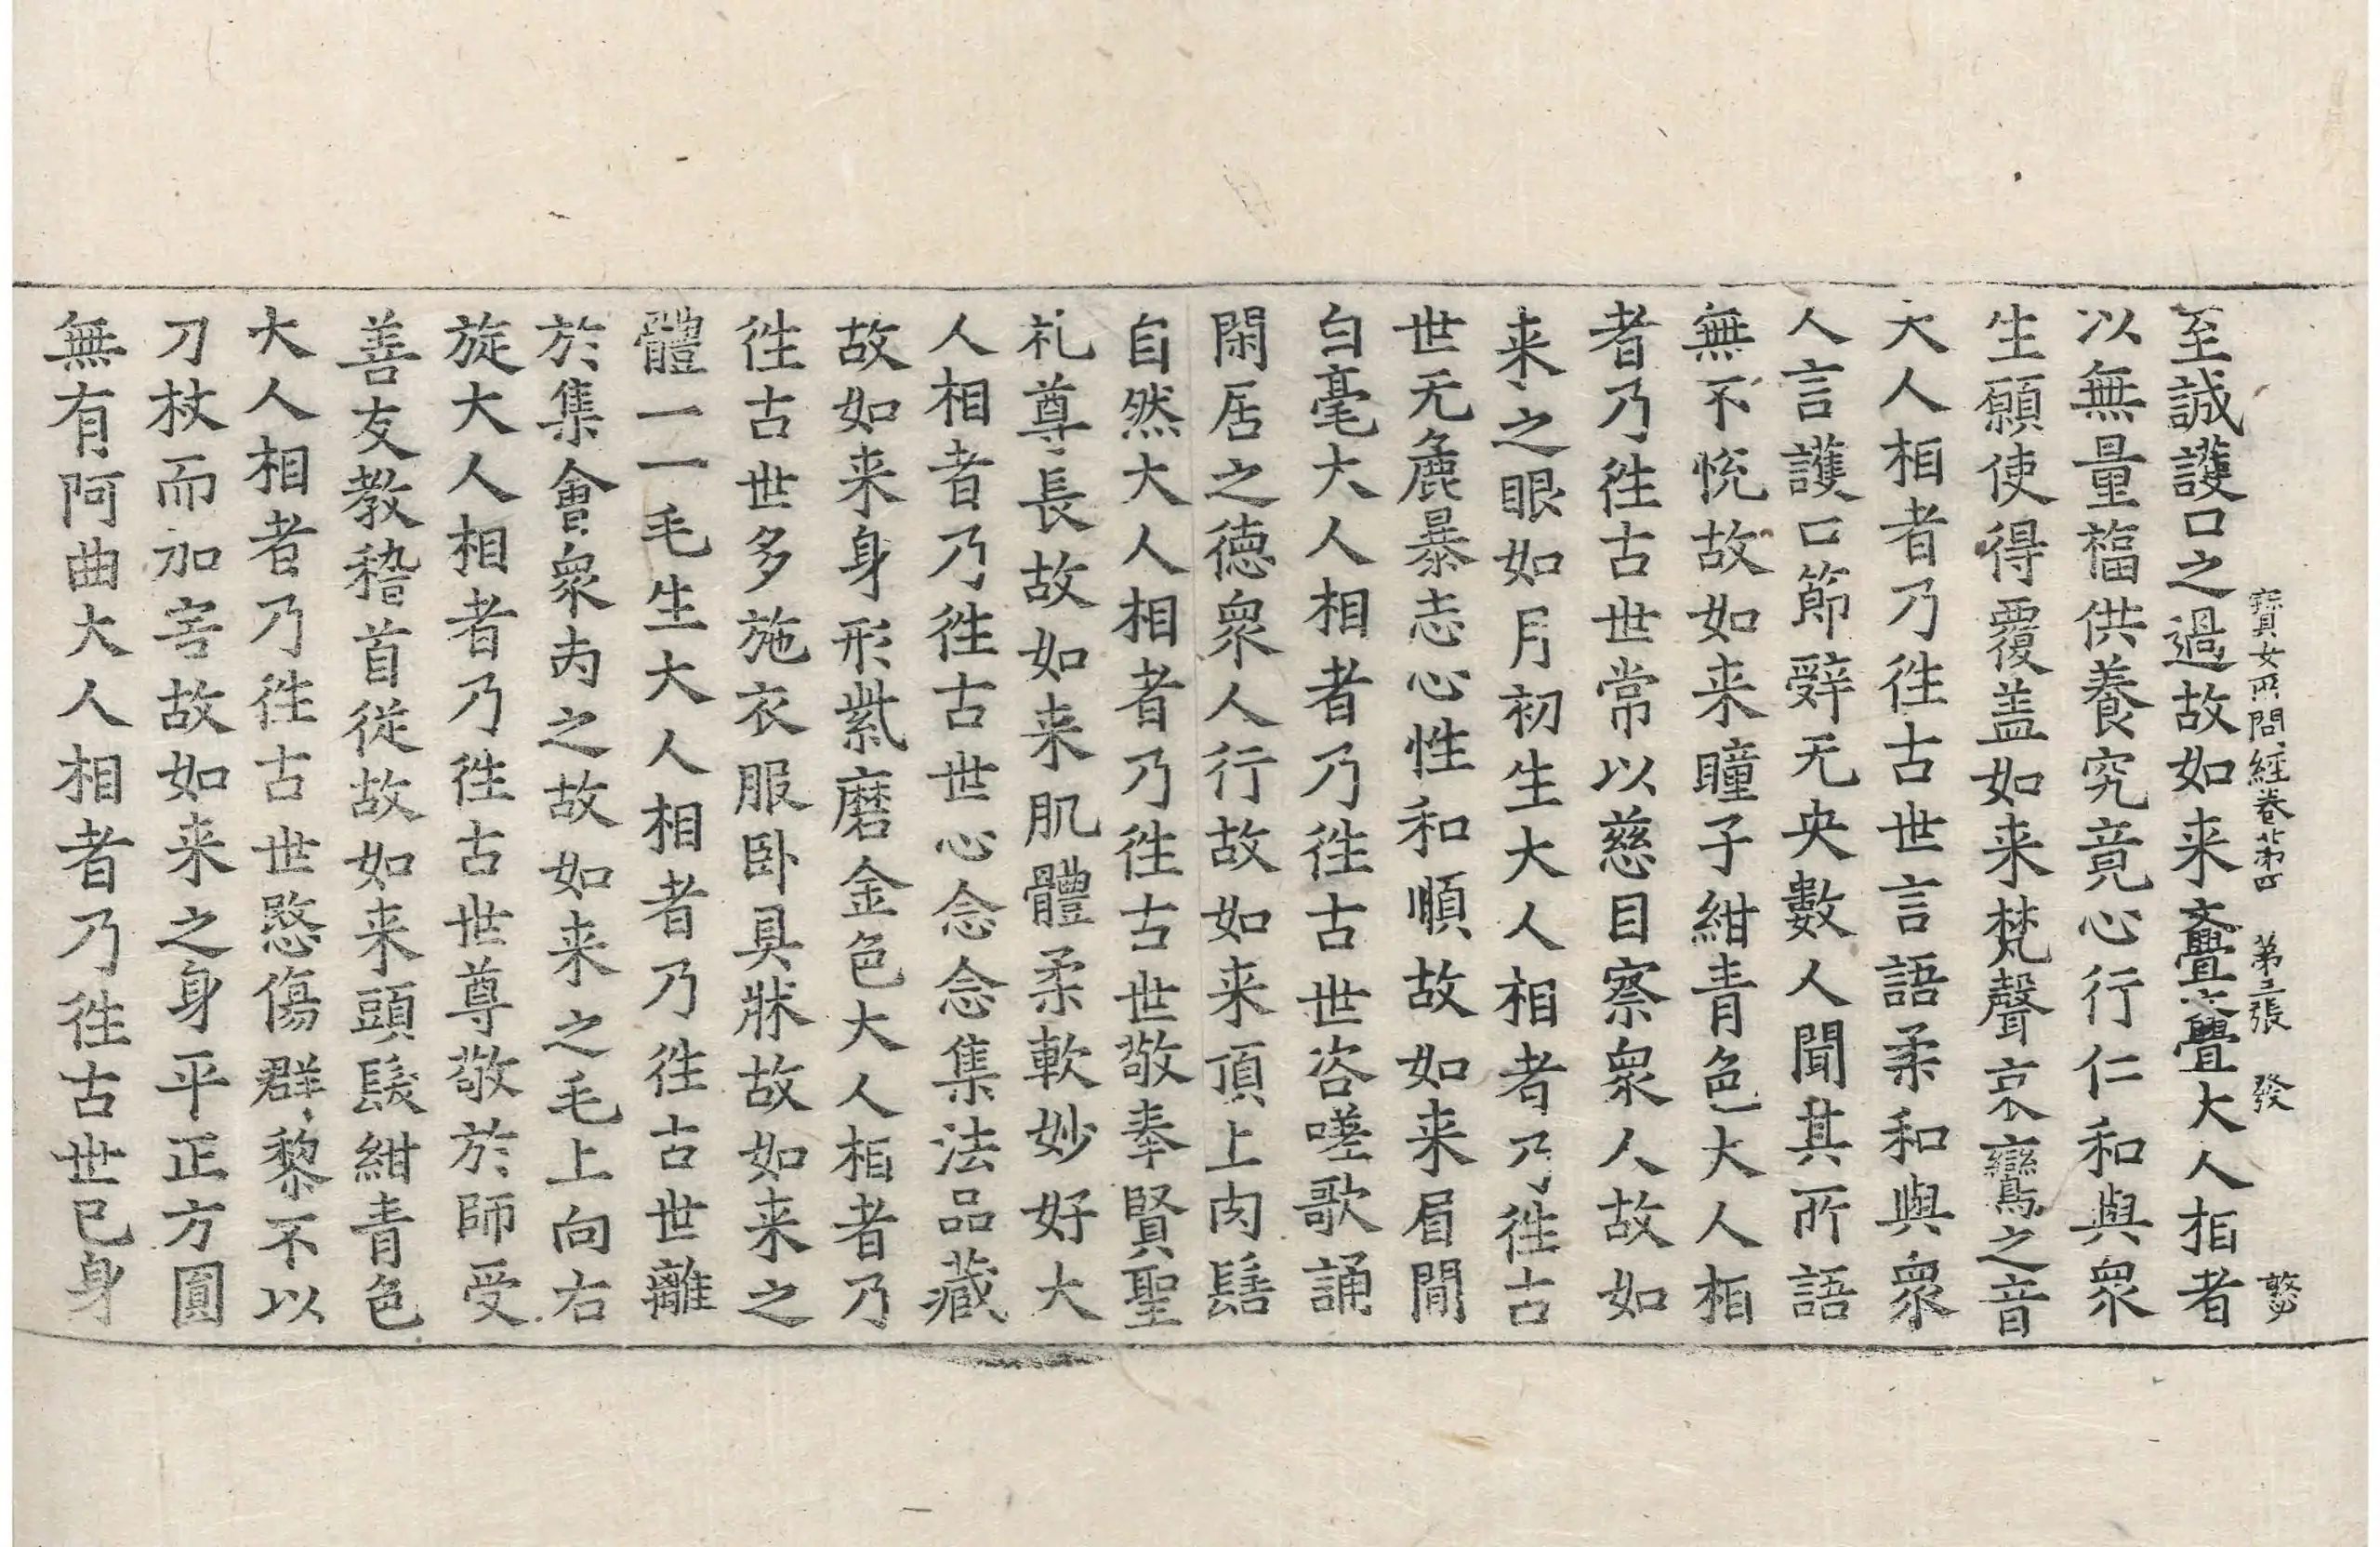 寶女所問經卷第四 第三張 發
至誠護口之過故如来亹亹大人相者
以無量福供養究竟心行仁和與衆
生願使得覆盖如来梵聲哀鸞之音
大人相者乃徃古世言語柔和與衆
人言護口節辝无央數人聞其所語
無不悅故如来瞳子紺青色大人相
者乃徃古世常以慈目察衆人故如
来之眼如月初生大人相者乃徃古
世无麁暴志心性和順故如来眉間
白毫大人相者乃徃古世咨嗟歌誦
閑居之德衆人行故如来頂上肉髻
自然大人相者乃徃古世敬奉賢聖
礼尊長故如来肌體柔軟妙好大
人相者乃徃古世心念念集法品藏
故如来身形紫磨金色大人相者乃
徃古世多施衣服卧具牀故如来之
體一一毛生大人相者乃徃古世離
於集會衆内之故如来之毛上向右
旋大人相者乃徃古世尊敬於師受
善友教稽首從故如来頭髮紺青色
大人相者乃徃古世愍傷群黎不以
刀杖而加害故如来之身平正方圓
無有阿曲大人相者乃徃古世已身